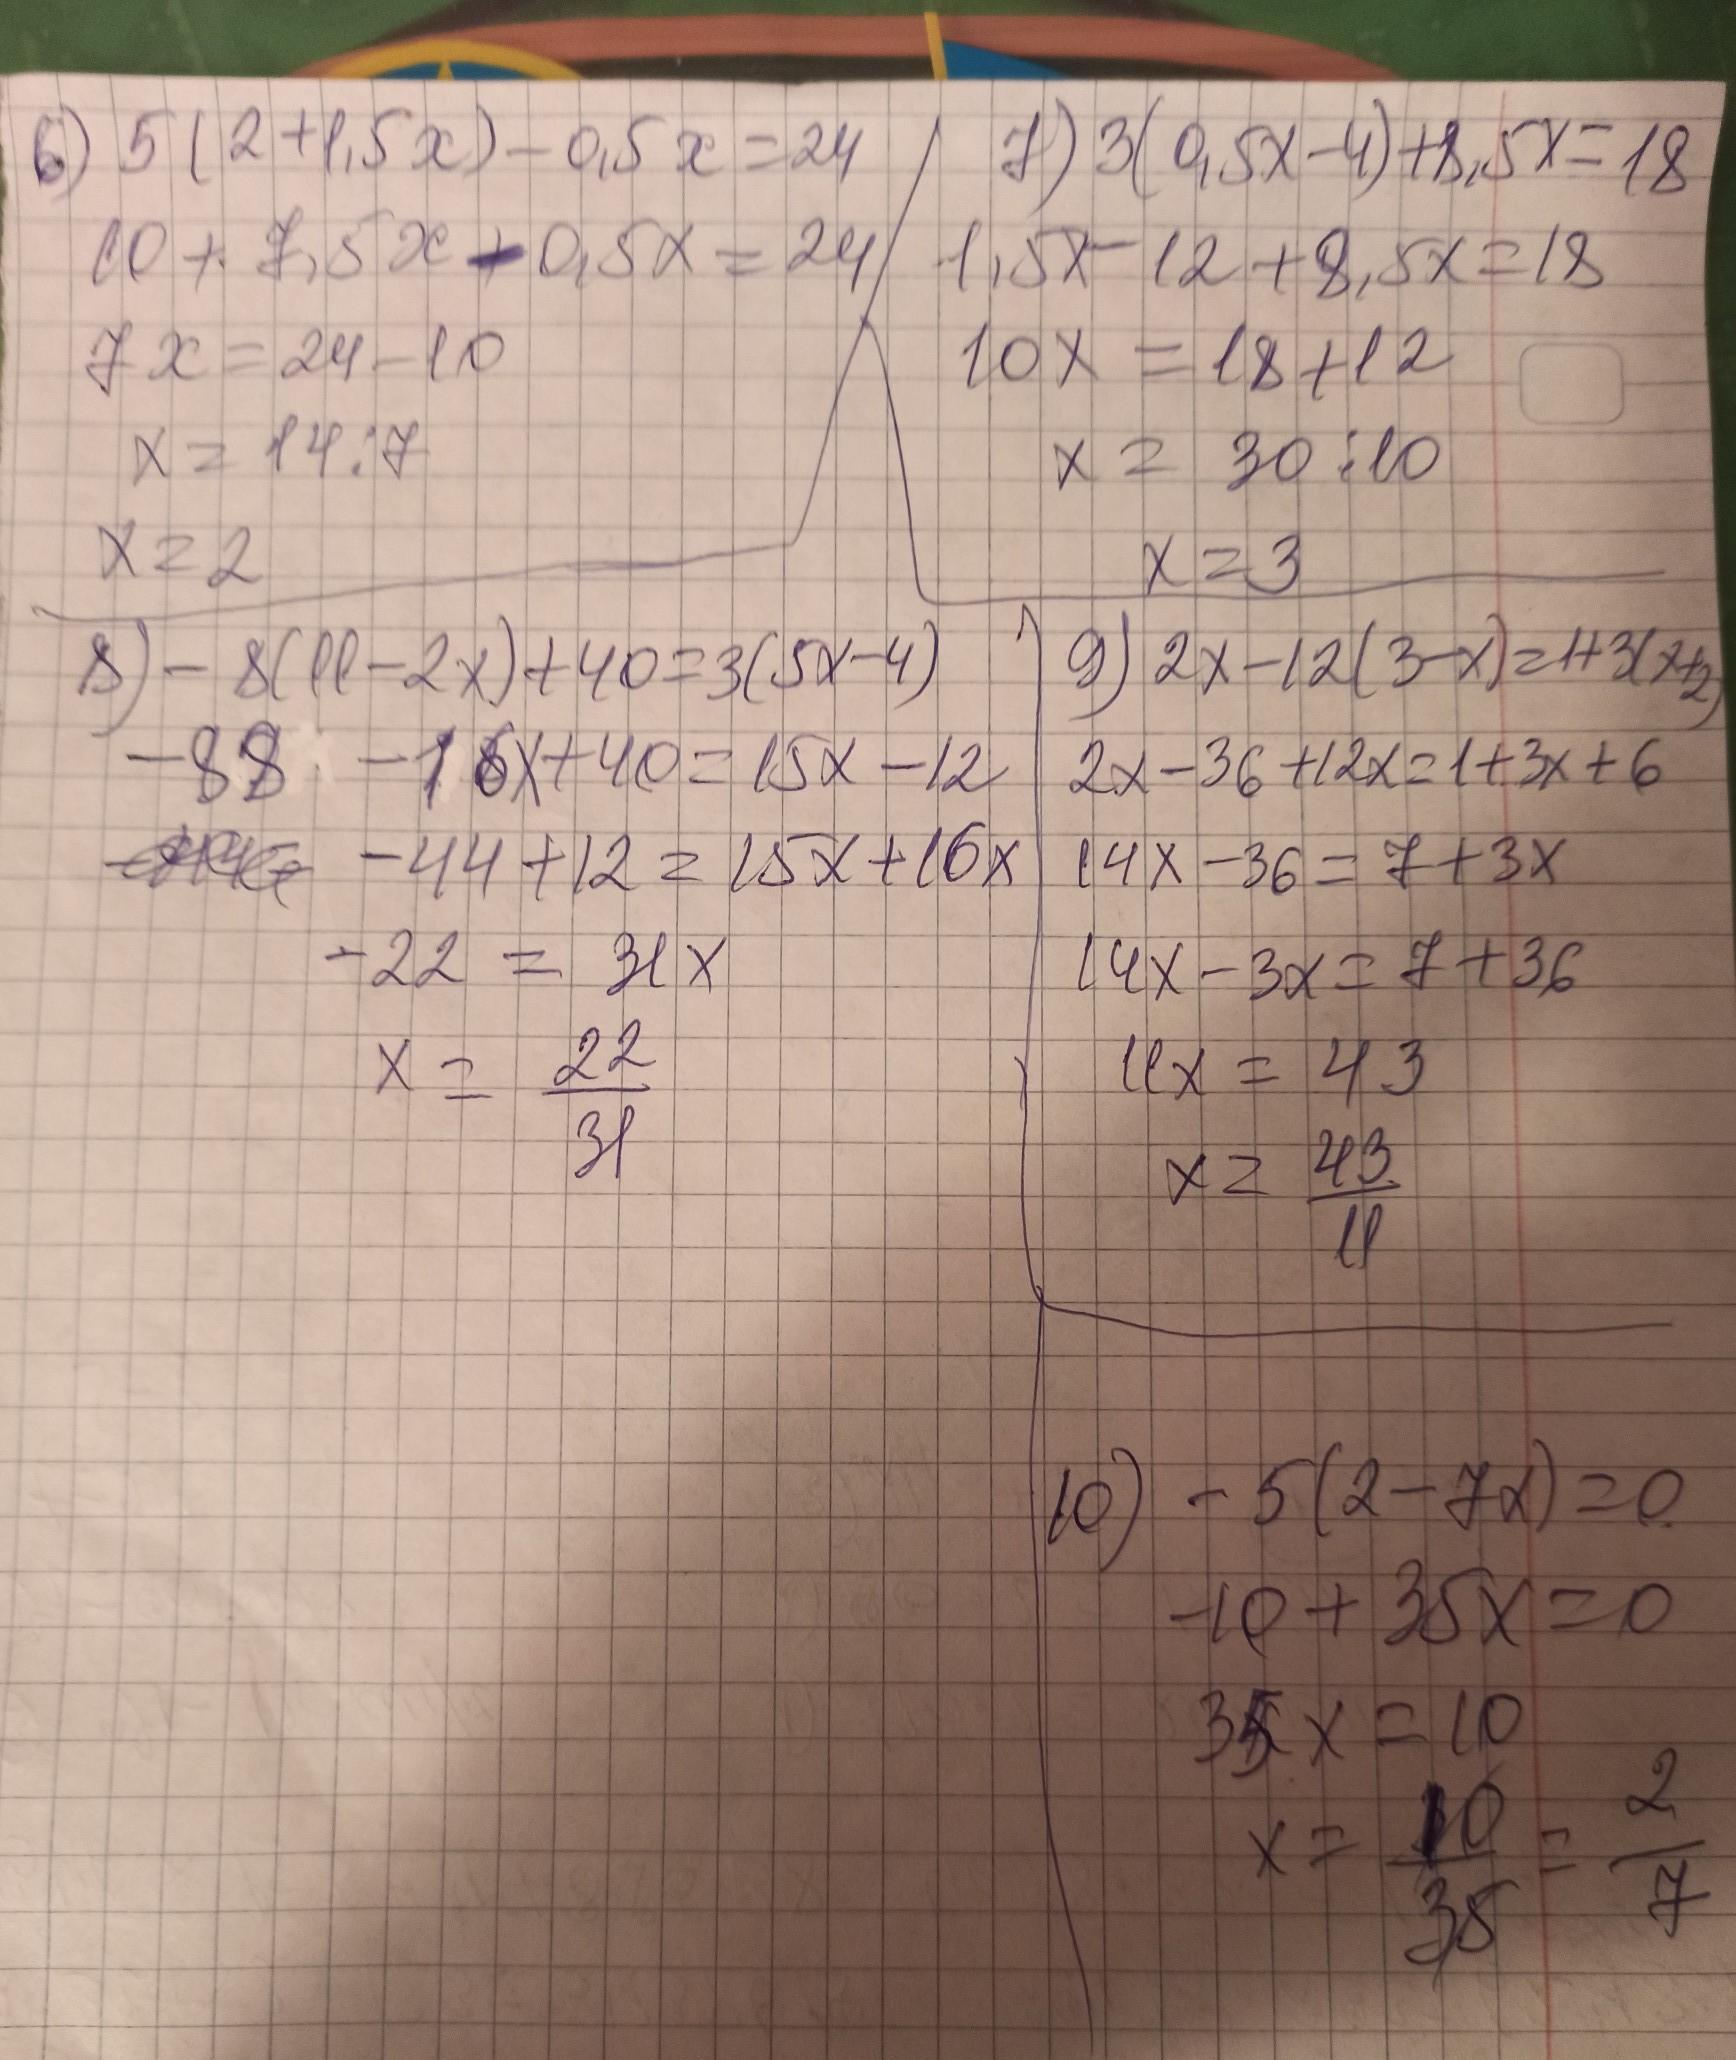 6) 5(2+1,5x)-0,5x=24
10+7,5x-0,5x=24
7x=24-10
x=14:7
x=2
7) 3(0,5x-4)+8,5x=18
1,5x-12+8,5x=18
10x=18+12
x=30:10
x=3
8) -8(11-2x)+40=3(5x-4)
-88 -16x+40=15x-12
-44+12=15x+16x
-22=31x
x=22/31
9) 2x-12(3-x)=1+3(x+2)
2x-36+12x=1+3x+6
14x-36=7+3x
14x-3x=7+36
11x=43
x=43/11
10) -5(2-7x)=0
-10+35x=0
35x=10
x=10/35=2/7